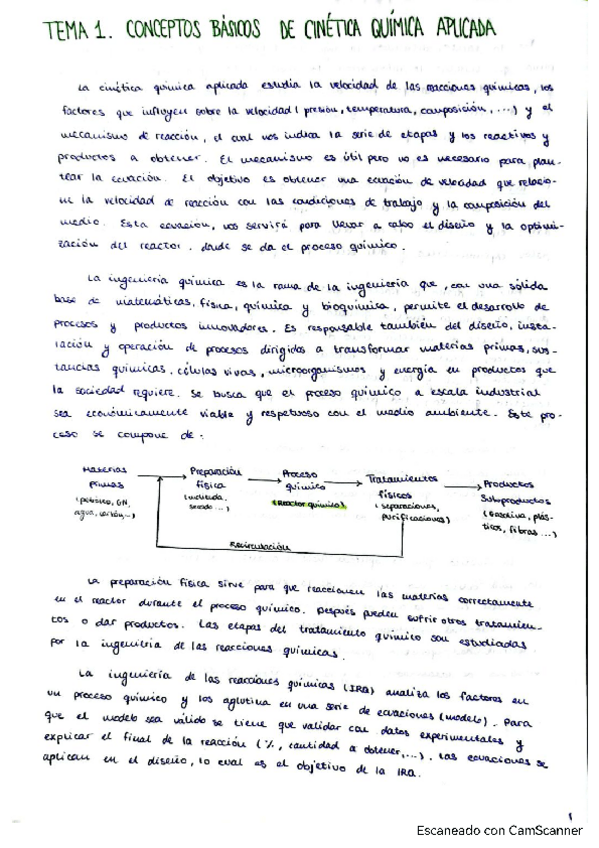 TEMA 1. CONCEPTOS BÁSICOS DE CINÉTICA QUÍMICA APLICADA
La cinética química aplicada estudia la velocidad de las reacciones químicas, los
factores que influyen sobre la velocidad (presión, temperatura, composición, ...) y el
mecanismo de reacción, el cual nos indica la serie de etapas y los reactivos y
productos a obtener. El mecanismo es útil pero no es necesario para plan-
tear la ecuación. El objetivo es obtener una ecuación de velocidad que relacio-
ne la velocidad de reacción con las condiciones de trabajo y la composición del
medio. Esta ecuación, nos servirá para llevar a cabo el diseño y la optimi-
zación del reactor, donde se da el proceso químico.
La ingeniería química es la rama de la ingeniería que, con una sólida
base de matemáticas, física, química y bioquímica, permite el desarrollo de
procesos y productos innovadores. Es responsable también del diseño, insta-
lación y operación de procesos dirigidos a transformar materias primas, sus-
tancias químicas, células vivas, microorganismos y energía en productos que
la sociedad requiere. Se busca que el proceso químico a escala industrial
sea económicamente viable y respetuoso con el medio ambiente. Este pro-
ceso se compone de:
Materias primas (petróleo, GN, agua, carbón,...)
Preparación física (molienda, secado...)
Proceso químico (Reactor químico)
Tratamientos físicos (separaciones, purificaciones)
Productos Subproductos (Gasolina, plás-
ticos, fibras...)
Recirculación
La preparación física sirve para que reaccionen las materias correctamente
en el reactor durante el proceso químico. Después pueden sufrir otros tratamien-
tos o dar productos. Las etapas del tratamiento químico son estudiadas
por la ingeniería de las reacciones químicas.
La ingeniería de las reacciones químicas (IRQ) analiza los factores en
un proceso químico y los aglutina en una serie de ecuaciones (modelo). Para
que el modelo sea válido se tiene que validar con datos experimentales y
explicar el final de la reacción (%, cantidad a obtener,...). Las ecuaciones se
aplican en el diseño, lo cual es el objetivo de la IRQ.
1
Escaneado con CamScanner